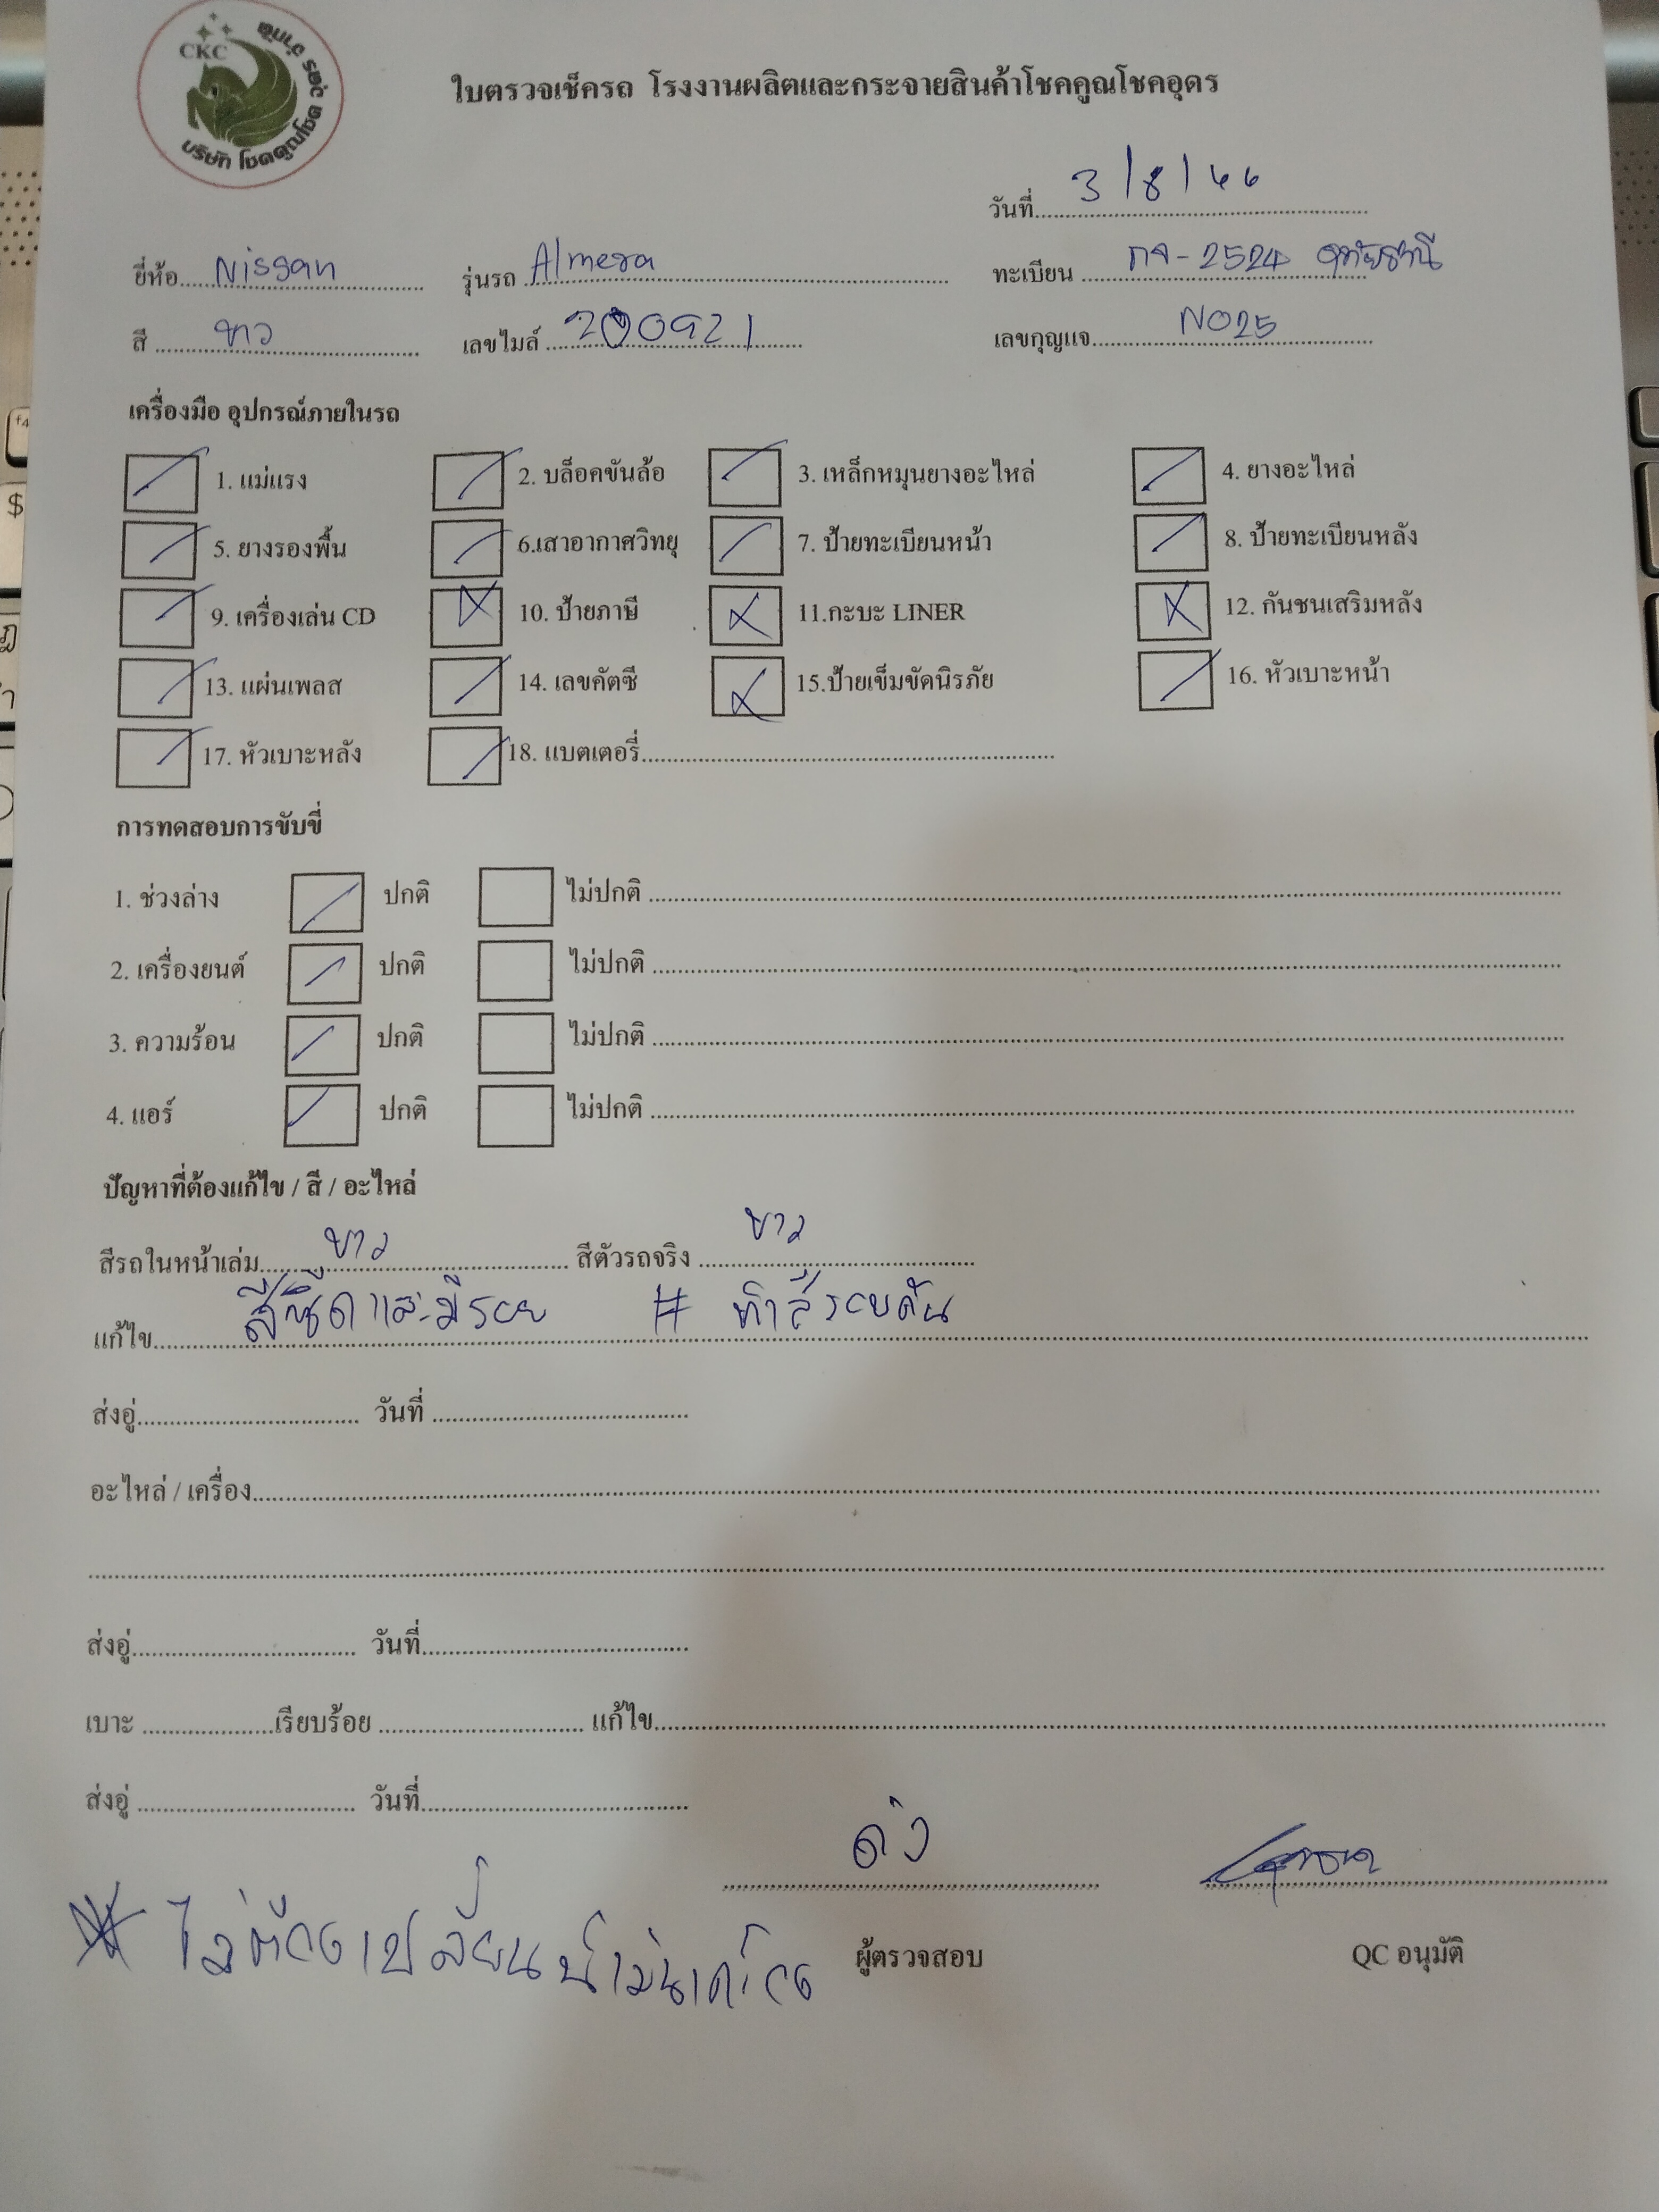 CKC
บริษัท โชคคูณโชค อุดร จำกัด
ใบตรวจเช็ครถ โรงงานผลิตและกระจายสินค้าโชคคูณโชคอุดร
วันที่ 3/8/66
ยี่ห้อ Nissan รุ่นรถ Almera ทะเบียน กจ-2524 อุทัยธานี
สี ขาว เลขไมล์ 200921 เลขกุญแจ NO25
เครื่องมือ อุปกรณ์ภายในรถ
1. แม่แรง 2. บล็อคขันล้อ 3. เหล็กหมุนยางอะไหล่ 4. ยางอะไหล่
5. ยางรองพื้น 6.เสาอากาศวิทยุ 7. ป้ายทะเบียนหน้า 8. ป้ายทะเบียนหลัง
9. เครื่องเล่น CD 10. ป้ายภาษี 11.กะบะ LINER 12. กันชนเสริมหลัง
13. แผ่นเพลส 14. เลขคัตซี 15.ป้ายเข็มขัดนิรภัย 16. หัวเบาะหน้า
17. หัวเบาะหลัง 18. แบตเตอรี่
การทดสอบการขับขี่
1. ช่วงล่าง ปกติ ไม่ปกติ
2. เครื่องยนต์ ปกติ ไม่ปกติ
3. ความร้อน ปกติ ไม่ปกติ
4. แอร์ ปกติ ไม่ปกติ
ปัญหาที่ต้องแก้ไข / สี / อะไหล่
สีรถในหน้าเล่ม ขาว สีตัวรถจริง ขาว
แก้ไข สีซีดและมีรอย # ทำสีรอบคัน
ส่งอู่ วันที่
อะไหล่ / เครื่อง
ส่งอู่ วันที่
เบาะ เรียบร้อย แก้ไข
ส่งอู่ วันที่
ต่ง
ผู้ตรวจสอบ QC อนุมัติ
ไม่ต้องเปลี่ยนน้ำมันเครื่อง